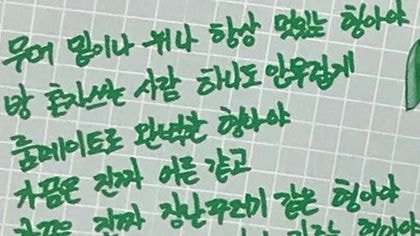 무대 밑이나 위나 항상 멋있는 형아야
방 혼자쓰는 사람 하나도 안부럽게
룸메이트로 완벽한 형아야
가끔은 진짜 어른 같고
가끔은 진짜 장난꾸러기 같은 형아야